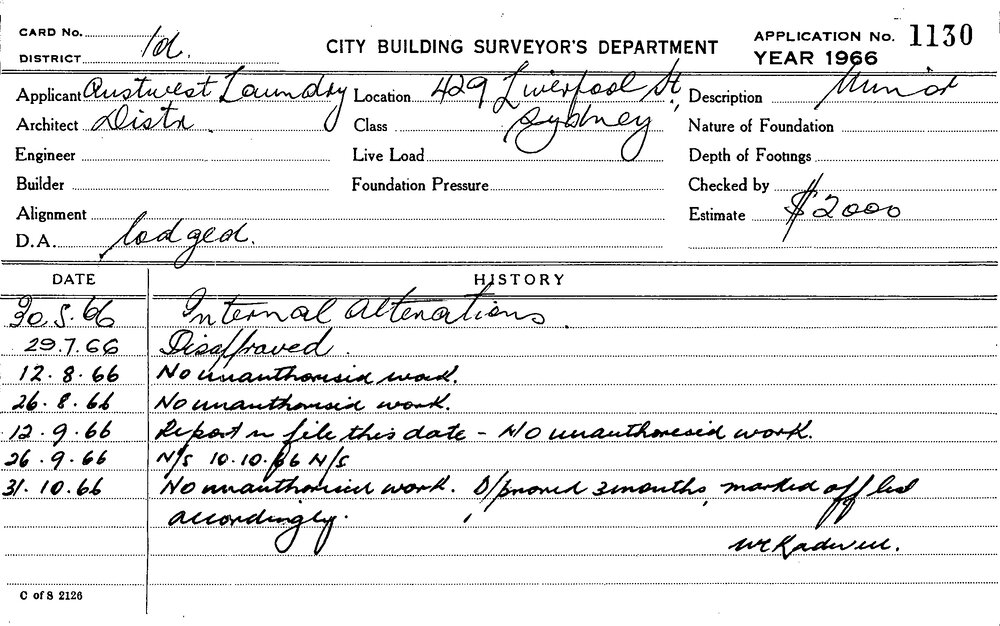 CARD No.
DISTRICT 1d.
CITY BUILDING SURVEYOR'S DEPARTMENT
APPLICATION No. 1130
YEAR 1966
Applicant Austwest Laundry Location 429 Liverpool St, Description Minor
Architect Distr. Class Sydney Nature of Foundation
Engineer Live Load Depth of Footings
Builder Foundation Pressure Checked by
Alignment Estimate $2000
D.A. lodged.
DATE HISTORY
30.5.66 Internal Alterations.
29.7.66 Disapproved.
12.8.66 No unauthorised work.
26.8.66 No unauthorised work.
12.9.66 Report on file this date - No unauthorised work.
26.9.66 N/S 10.10.66 N/S
31.10.66 No unauthorised work. D/proved 3 months, marked off list
accordingly.
C of S 2126